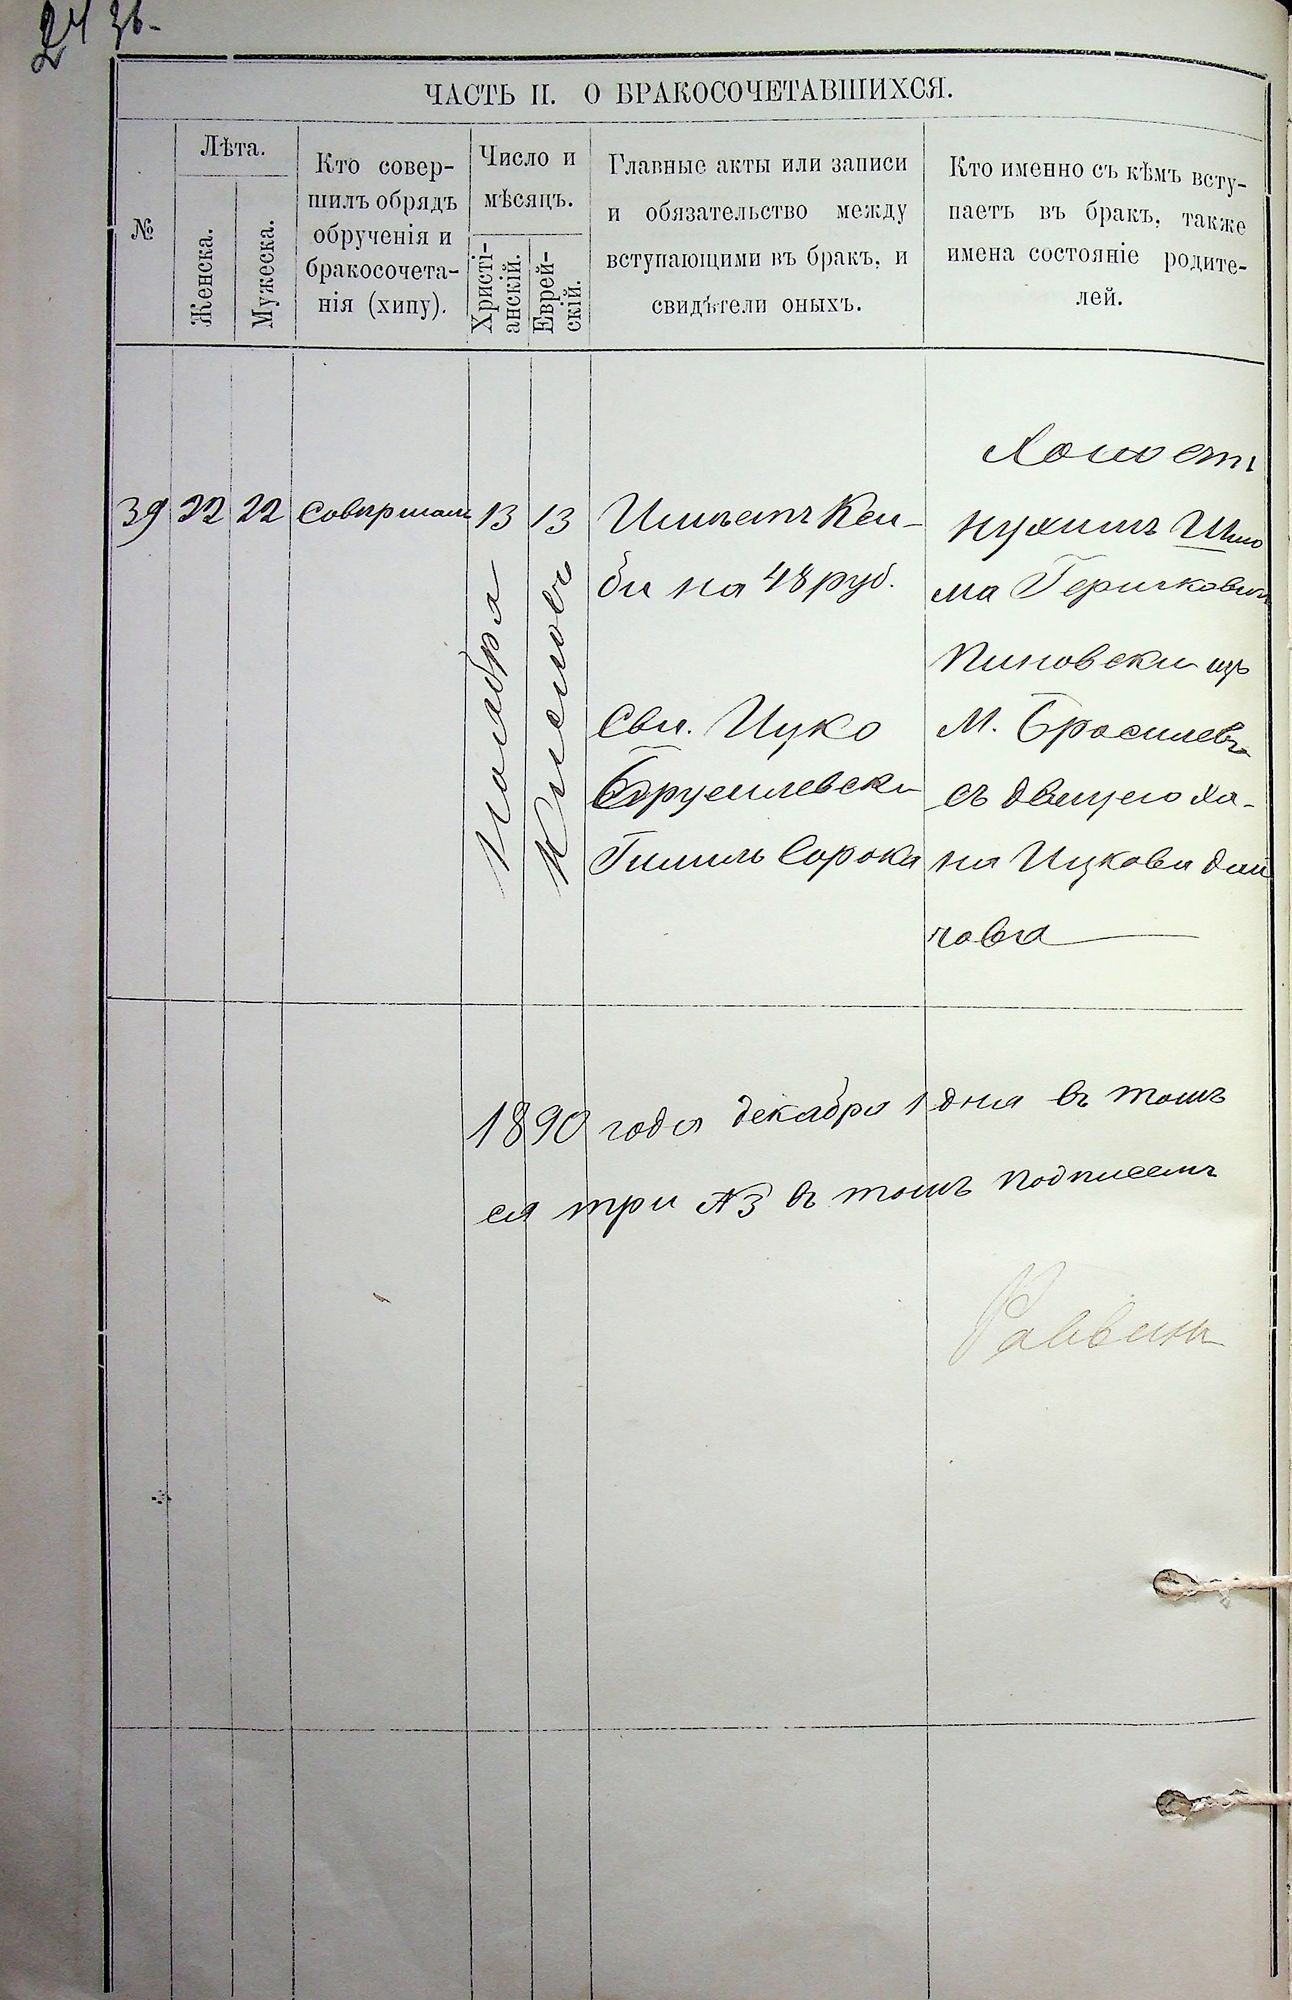 24 36-
ЧАСТЬ II. О БРАКОСОЧЕТАВШИХСЯ.
№
Лѣта.
Женска.
Мужеска.
Кто совер-
шилъ обрядъ
обрученія и
бракосочета-
нія (хипу).
Число и
мѣсяцъ.
Христі-
анскій.
Еврей-
скій.
Главные акты или записи
и обязательство между
вступающими въ бракъ, и
свидѣтели оныхъ.
Кто именно съ кѣмъ всту-
паетъ въ бракъ, также
имена состояніе родите-
лей.
39 22 22 Совершал 13 13
Ноября
Кислевъ
на 48 руб.
Сви. Ицко
Брусилевски
Сорока
Холост
Нухимъ Шло
ма Гершкович
Пиновски изъ
М. Бросилевъ
съ двицею Ха-
на Ицкова
това
1890 года декабря 1 дня въ томъ
ся три №3 въ томъ подписемъ
Раввинъ